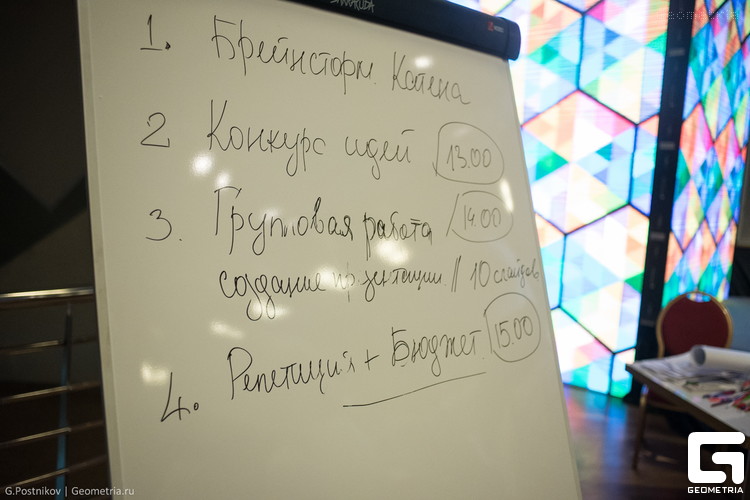 1. Брейнсторм. Копена
2 Конкурс идей 13.00
3. Групповая работа 14.00
создание презентации // 10 слайдов
4. Репетиция + Бюджет. 15.00
G.Postnikov | Geometria.ru
GEOMETRIA